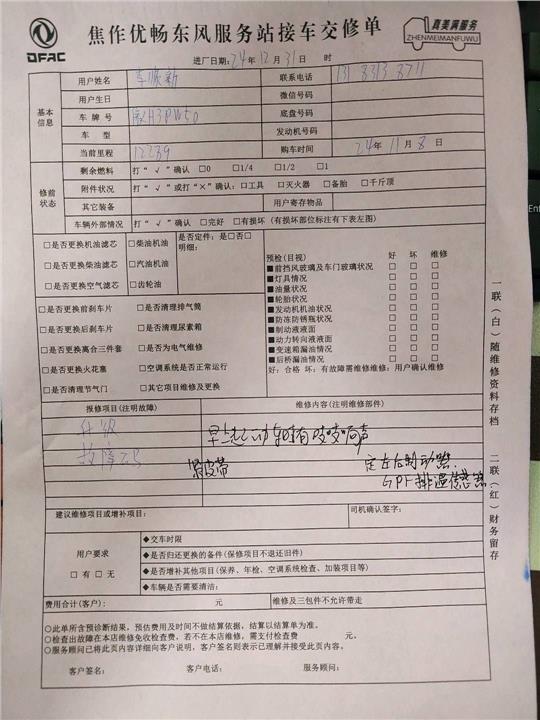 DFAC
焦作优畅东风服务站接车交修单
真美满服务
ZHENMEIMANFUWU
进厂日期：24年 12月 31日 时
基本信息
用户姓名
联系电话
用户生日
微信号码
车牌号
底盘号码
车型
发动机号码
当前里程 12239
购车时间 24年 11月 8日
修前状态
剩余燃料 打“√”确认 □0 □1/4 □1/2 □1
附件状况 打“√”或打“×”确认：□工具 □灭火器 □备胎 □千斤顶
其它装备
用户寄存物品
车辆外部情况 打“√”确认 □完好 □有损坏（有损坏部位标注有下表左图）
□是否更换机油滤芯 □柴油机油
□是否更换柴油滤芯 □汽油机油
□是否更换空气滤芯 □齿轮油
是否定件：是□否□
明细：
□是否更换前刹车片 □是否清理排气筒
□是否更换后刹车片 □是否清理尿素箱
□是否更换离合三件套 □是否为电气维修
□是否更换火花塞 □空调系统是否正常运行
□是否清理节气门 □其它项目维修及更换
预检（目视） 好 坏 维修
■前挡风玻璃及车门玻璃状况 □ □ □
■灯具情况 □ □ □
■油量状况 □ □ □
■轮胎状况 □ □ □
■发动机机油状况 □ □ □
■防冻防锈瓶状况 □ □ □
■制动液液面 □ □ □
■动力转向液液面 □ □ □
■变速箱漏油情况 □ □ □
■后桥漏油情况 □ □ □
好：合格 坏：有故障需维修维修：用户确认维修
报修项目（注明故障）
维修内容（注明维修部件）
升级
故障码
早上起动时有吱吱响声
紧皮带
定左后制动器
GPF排温传感器
建议维修项目或增补项目：
司机确认签字：
用户要求
□有 □无
◆交车时限
◆是否归还更换的备件（保修项目不退还旧件）
◆是否增补其他项目（保养、年检、空调系统检查、加装项目等）
◆车辆是否需要清洁：
费用合计（客户）： 元
维修及三包件不允许带走
○此单所含预诊断结果，预估费用及时间不做结算依据，结算以结算单为准。
○检查出故障在本店维修免收检查费，若不在本店维修，需支付检查费 元。
○服务顾问已将此页内容详细向客户说明，客户签名则表示已理解并接受此页内容。
客户签名： 客户电话： 服务顾问：
一联（白）随维修资料存档
二联（红）财务留存